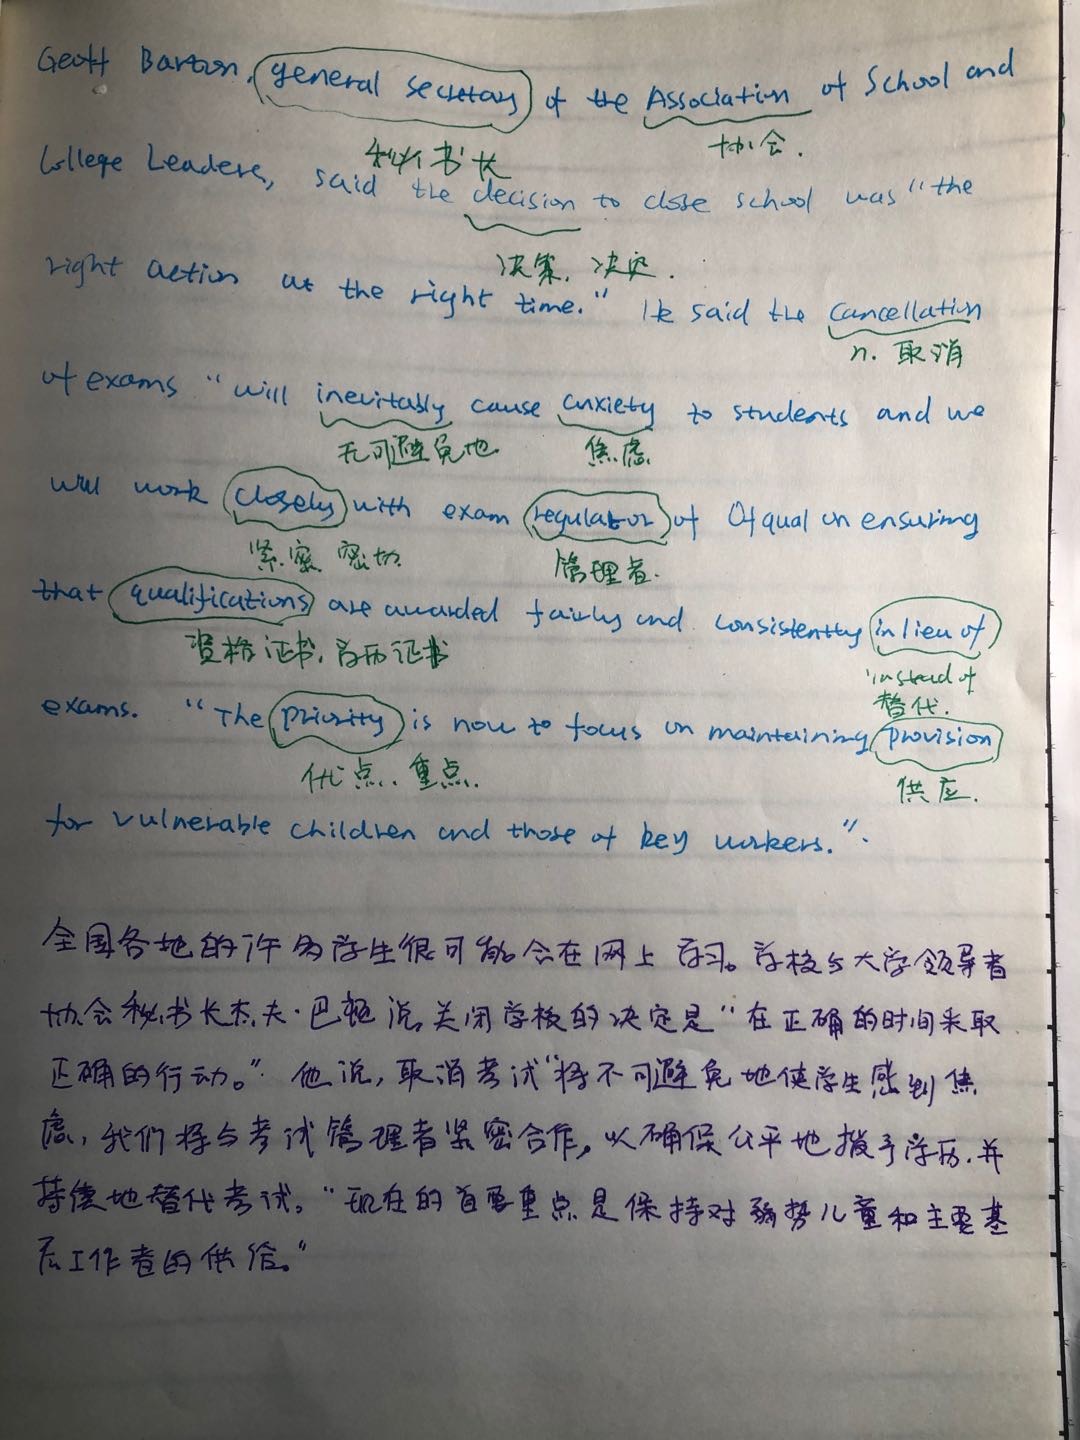 Geoff Barton, general secretary of the Association of School and
秘书长 协会.
College Leaders, said the decision to close school was "the
决策, 决定.
right action at the right time." He said the cancellation
n. 取消
of exams "will inevitably cause anxiety to students and we
无可避免地 焦虑
will work closely with exam regulator of Ofqual on ensuring
紧密 密切 管理者.
that qualifications are awarded fairly and consistently in lieu of
资格证书, 学历证书 instead of
替代.
exams. "The priority is now to focus on maintaining provision
优点. 重点. 供应.
for vulnerable children and those of key workers."
全国各地的许多学生很可能会在网上学习。学校与大学领导者
协会秘书长杰夫·巴顿说,关闭学校的决定是"在正确的时间采取
正确的行动。" 他说,取消考试"将不可避免地使学生感到焦
虑,我们将与考试管理者紧密合作,以确保公平地授予学历,并
持续地替代考试。"现在的首要重点是保持对弱势儿童和主要基
层工作者的供给。"